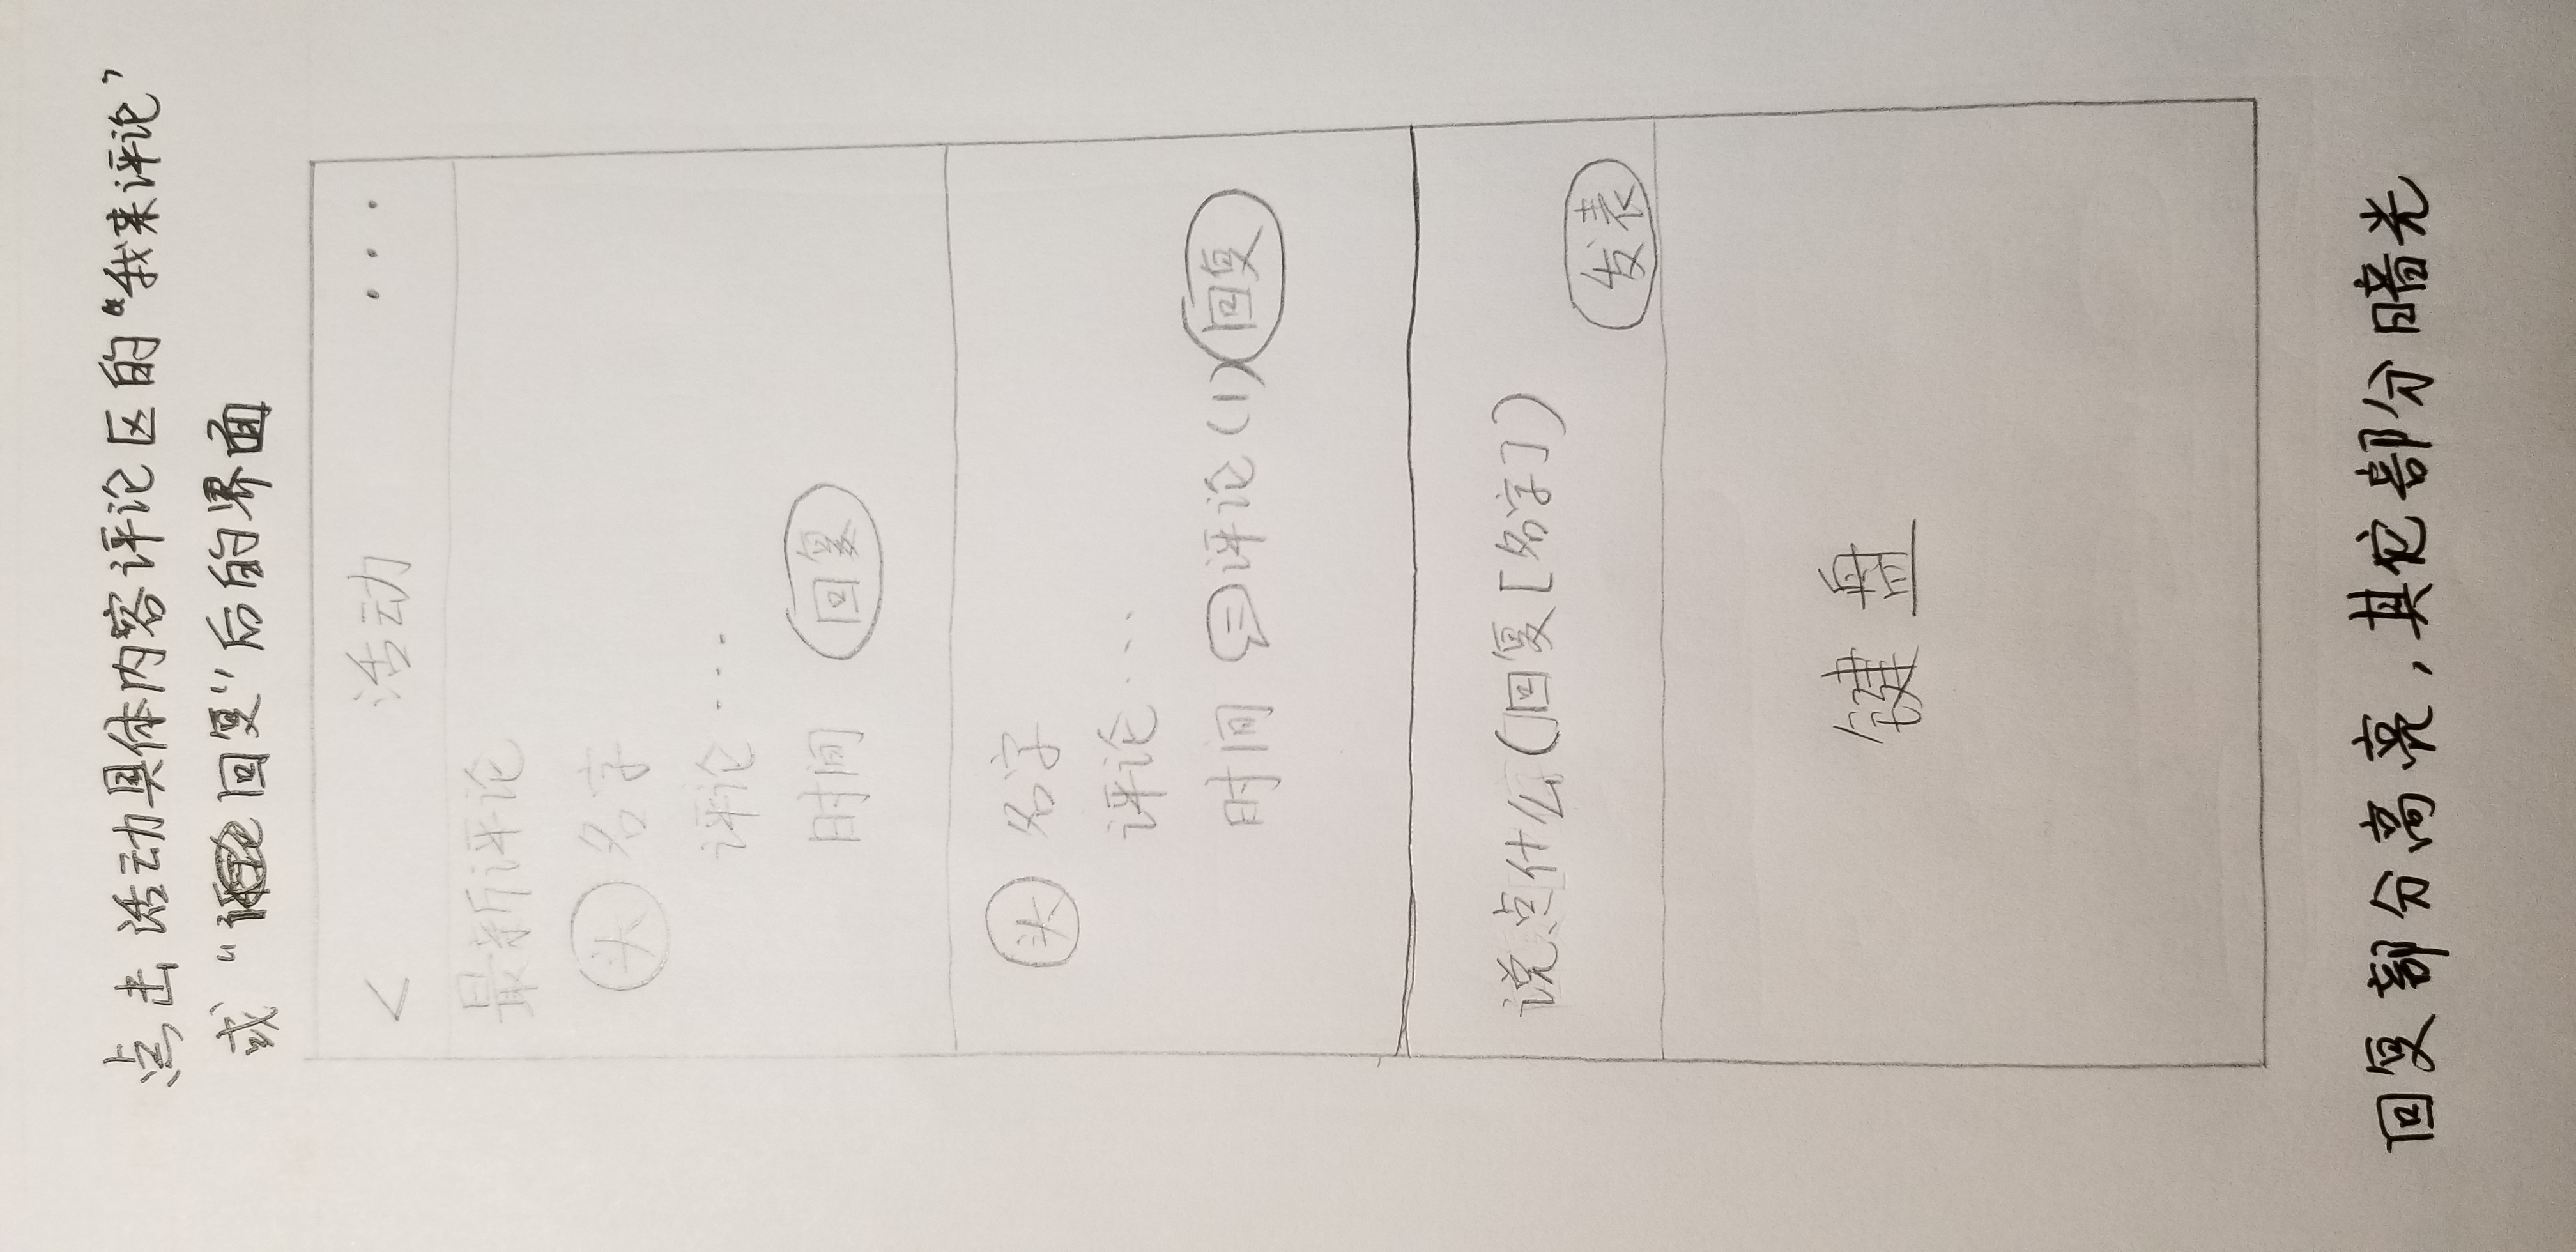 点击活动具体内容评论区的“我来评论”
或“回复”后的界面
< 活动 ...
最新评论
头 名字
评论...
时间 回复
头 名字
评论...
时间 评论(1) 回复
说点什么(回复[名字])
发表
键盘
回复部分高亮,其它部分暗光